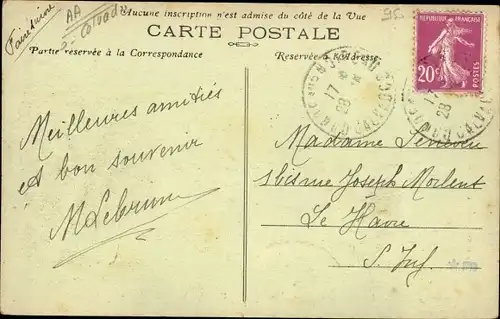 Aucune inscription n'est admise du côté de la Vue
CARTE POSTALE
Partie réservée à la Correspondance
Réservée à l'Adresse
95
AA
Calvados
RÉPUBLIQUE FRANÇAISE
20c
POSTES
17
28
CALVADOS
17
28
CALVADOS
Meilleures amitiés
et bon souvenir
MLebrun
Madame
1 bis rue Joseph Morlent
Le Havre
S. Inf.